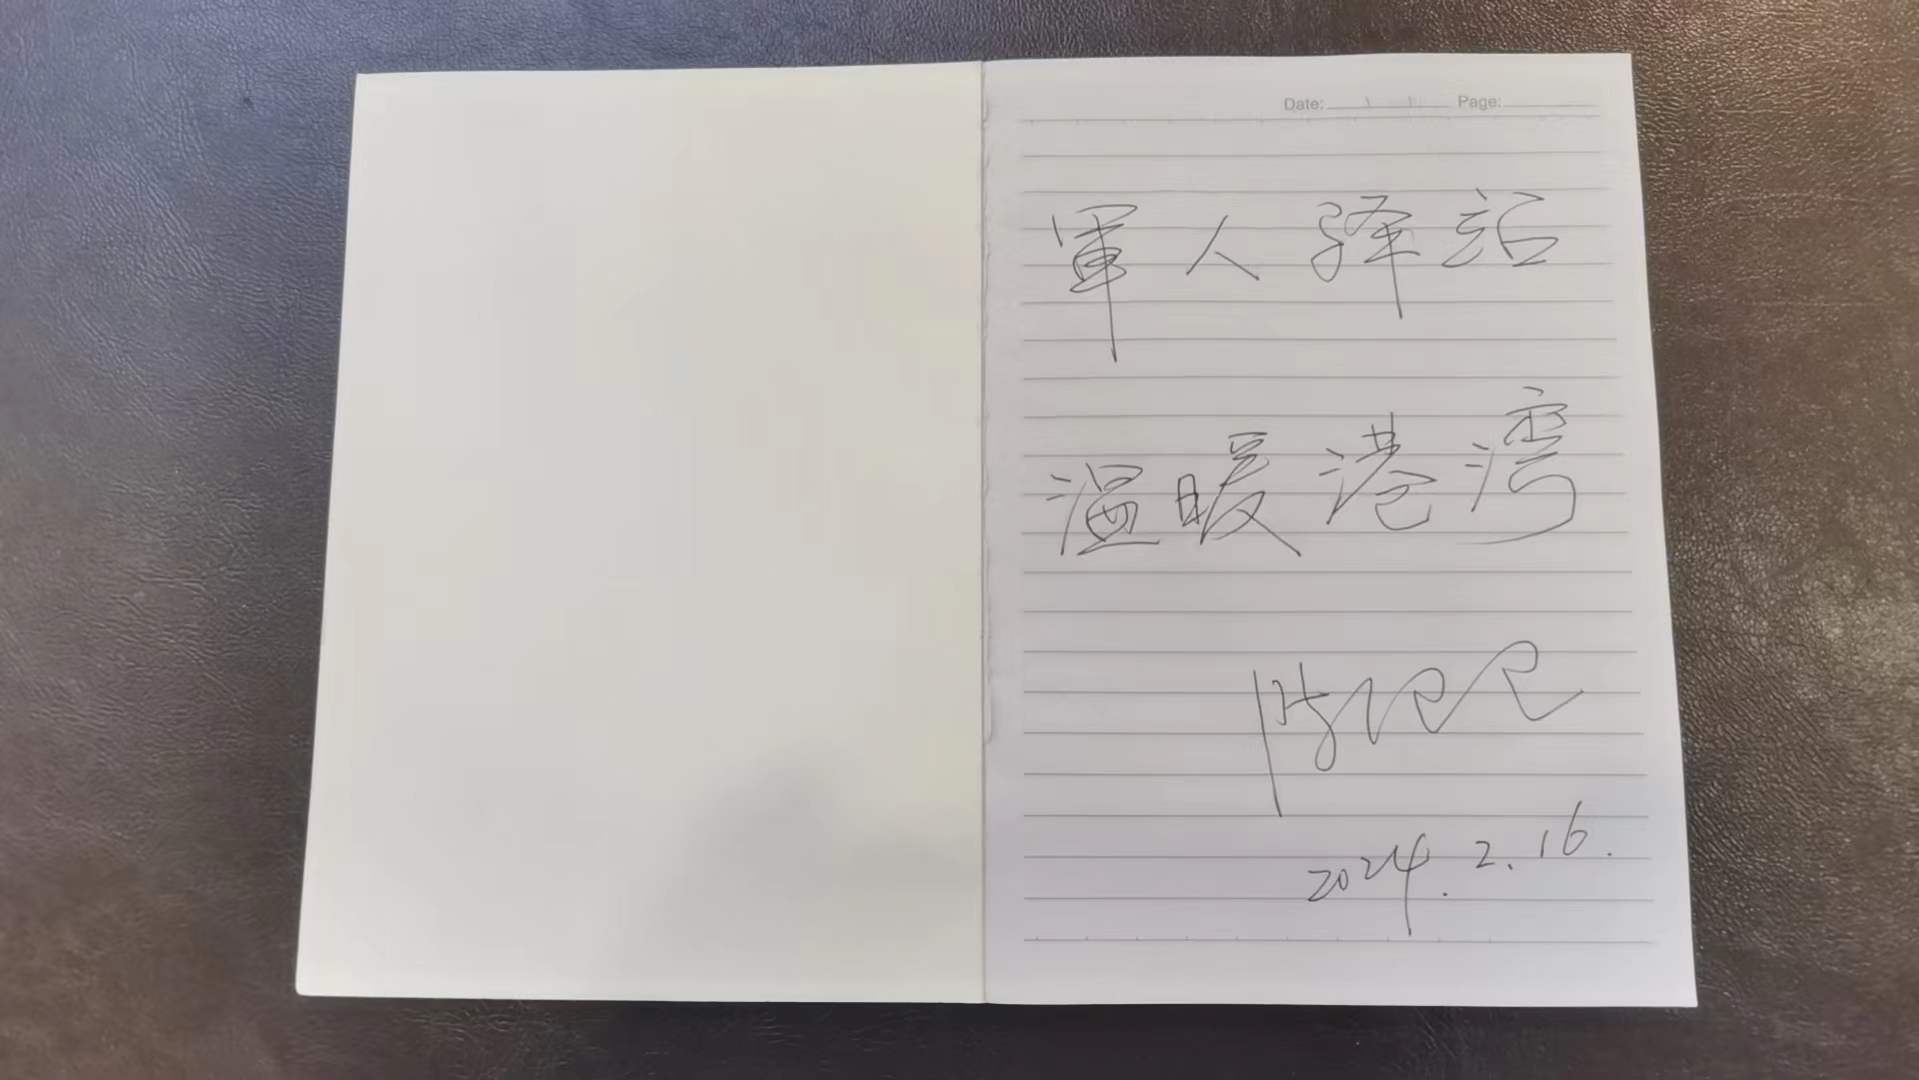 Date: Page:
軍人驿站
温暖港湾
2024.2.16.